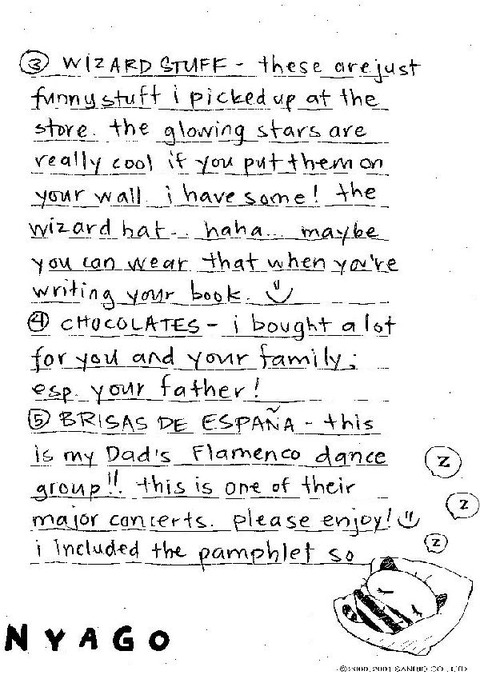 ③ WIZARD STUFF - these are just
funny stuff i picked up at the
store. the glowing stars are
really cool if you put them on
your wall. i have some! the
wizard hat... haha... maybe
you can wear that when you're
writing your book.
④ CHOCOLATES - i bought a lot
for you and your family;
esp. your father!
⑤ BRISAS DE ESPAÑA - this
is my Dad's Flamenco dance
group!! this is one of their
major concerts. please enjoy!
i included the pamphlet so
Z
Z
Z
NYAGO
©2000, 2001 SANRIO CO., LTD.